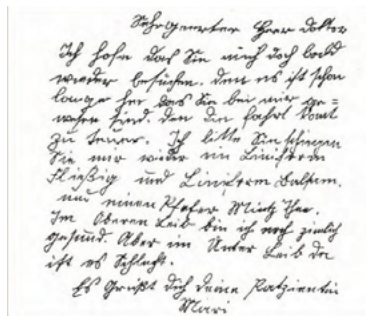 Sehr geerter Herr Doktor
Ich hofe das Sie mich doch bald
wieder besuchen. den es ist schon
lange her das Sie bei mir ge=
wesen sind. den die fahrt komt
zu teuer. Ich bitte Sie schicken
Sie mir wieder ein Liniform
Fließig und Liniform Balsam.
nur einen Pfefer Mintz Thee.
Im Oberen Leib bin ich noch zimlich
gesund. Aber im Unter Leib da
ist es Schlecht.
Es Grußt dich deine Patzientin
Mari